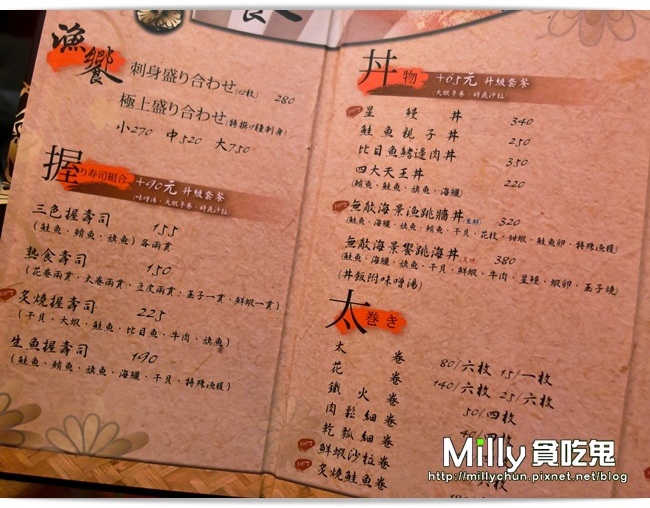 漁饗
刺身盛り合わせ(12枚) 280
極上盛り合わせ(特撰 種刺身)
小270 中520 大750
握り寿司組合 +90元 升級套餐
(味噌湯、大蝦手卷、時蔬沙拉)
三色握壽司 155
(鮭魚、鮪魚、旗魚)各兩貫
熟食壽司 150
(花卷兩貫,太卷兩貫,豆皮兩貫;玉子一貫,鮮蝦一貫)
HOT 炙燒握壽司 225
(干貝、大蝦、鮭魚、比目魚、牛肉、旗魚)
生魚握壽司 190
(鮭魚、鮪魚、旗魚、海鱺、干貝、特殊漁穫)
丼物 +65元 升級套餐
(大蝦手卷、時蔬沙拉)
HOT 星鰻丼 340
鮭魚親子丼 250
比目魚鰭邊肉丼 350
四大天王丼 220
(鮪魚、鮭魚、旗魚、海鱺)
HOT 無敵海景漁跳牆丼 320
(鮭魚、海鱺、旗魚、鮪魚、干貝、花枝、甜蝦、鮭魚卵、特殊漁穫)
無敵海景饗跳海丼 380
(鮭魚、海鱺、旗魚、干貝、鮮蝦、牛肉、星鰻、蝦卵、玉子燒)
(丼飯附味噌湯)
太巻き
太卷 80/六枚 15/一枚
花卷 140/六枚 25/六枚
鐵火卷 50/四枚
肉鬆細卷 40/四枚
乾瓢細卷
HOT 鮮蝦沙拉卷
HOT 炙燒鮭魚卷
Milly 貪吃鬼
http://millychun.pixnet.net/blog